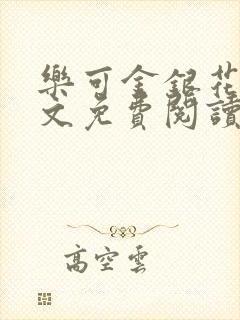 樂可金銀花
文免費閱讀
高空雲